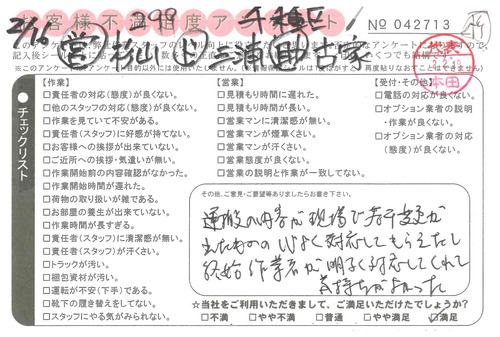 お客様不満足度アンケート
No 042713
2/16 299 千種区
営 杉山 上 三浦 古家
チェックリスト
【作業】
□責任者の対応(態度)が良くない。
□他のスタッフの対応(態度)が良くない。
□作業を見ていて不安がある。
□責任者(スタッフ)に好感が持てない。
□お客様への挨拶が出来ていない。
□ご近所への挨拶・気遣いが無い。
□作業開始前の内容確認がなかった。
□作業開始時間が遅れた。
□荷物の取り扱いが雑である。
□お部屋の養生が出来ていない。
□作業時間が長すぎる。
□責任者(スタッフ)に清潔感が無い。
□責任者(スタッフ)が汗くさい。
□トラックが汚い。
□梱包資材が汚い。
□運転が不安(下手)である。
□靴下の履き替えをしてない。
□スタッフにやる気がみられない。
【営業】
□見積もり時間に遅れた。
□見積もり時間が長い。
□営業マンに清潔感が無い。
□営業マンが煙草くさい。
□営業マンが汗くさい。
□営業態度が良くない。
□営業の説明と作業が一致してない。
【受付・その他】
□電話の対応が良くない。
□オプション業者の説明
・作業が良くない。
□オプション業者の対応
(態度)が良くない。
その他、ご意見・ご要望等ありましたらお書き下さい。
運搬の内容が現場で若干変更が
出たものの 心よく対応してもらえたし
終始 作業者が 明るく対応してくれて
気持ちがよかった
☆当社をご利用いただきまして、ご満足いただけたでしょうか?
□不満 □やや不満 □普通 □やや満足 ☑満足